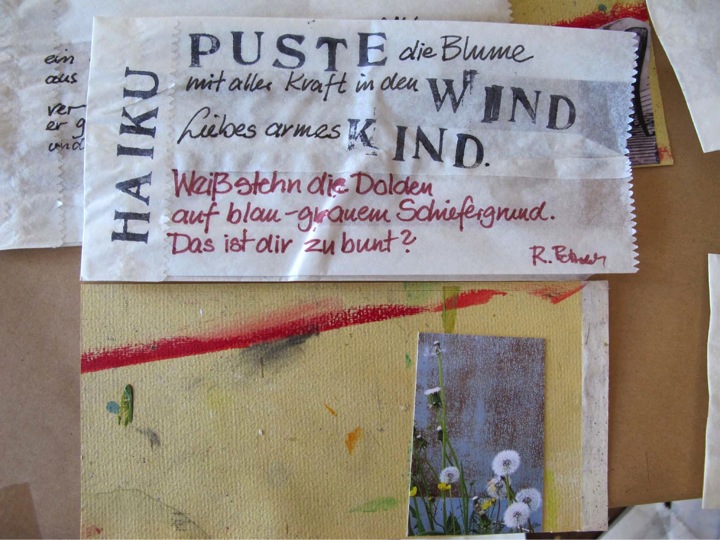 HAIKU
PUSTE die Blume
mit aller Kraft in den WIND
Liebes armes KIND.
Weiß stehn die Dolden
auf blau-grauem Schiefergrund.
Das ist dir zu bunt?
R.
ein
aus
ver-
er g
und